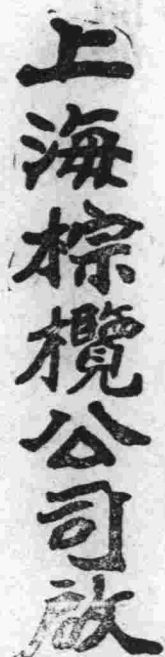 上海棕欖公司啟